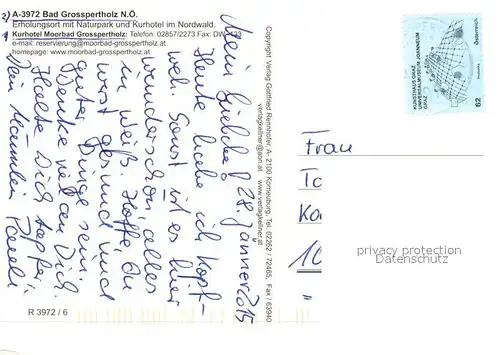 2) A-3972 Bad Grosspertholz N.Ö.
Erholungsort mit Naturpark und Kurhotel im Nordwald.
Kurhotel Moorbad Grosspertholz: Telefon: 02857/2273 Fax: DW 133
e-mail: reservierung@moorbad-grosspertholz.at
homepage: www.moorbad-grosspertholz.at
28. Jänner 2015
Mein Liebche!
Heute habe ich Kopf-
weh. Sonst ist es hier
wunderschön, alles
in weiß. Hoffe, Du
bist gesund und
guter Dinge sein.
Denke viel an Dich.
Halte Dich tapfer.
Dein
R 3972 / 6
Copyright Verlag Gottfried Rennhofer, A- 2100 Korneuburg, Tel. 02262 / 72465, Fax / 63940
verlagkellner@aon.at www.verlagkellner.at
KUNSTHAUS GRAZ
UNIVERSALMUSEUM JOANNEUM
GRAZ
Österreich
62
Frau
To
Ka
10
"
"
privacy protection
Datenschutz